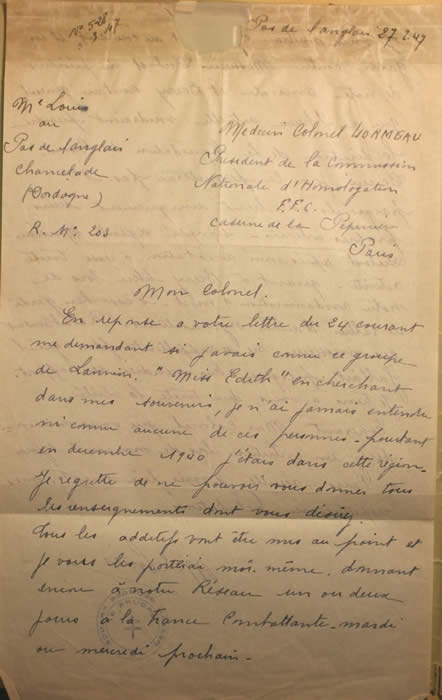 No 528
3.47
Pas de l'anglais 27.2.47
Mr Louis
au
Pas de l'anglais
Chancelade
(Dordogne)
R. No: 203
Medecin Colonel
President de la Commission
Nationale d'Homologation
F.F.C.
Caserne de la Pepiniere
Paris
Mon Colonel.
En reponse a votre lettre du 24 courant
me demandant si javais connu ce groupe
de Lannion. "Miss Edith" en cherchant
dans mes souvenirs, je n'ai jamais entendu
ni connu aucune de ces personnes - pourtant
en decembre 1940 j'étais dans cette région -
Je regrette de ne pouvoir vous donner tous
les enseignements dont vous désirez.
Tous les additifs vont être mis au point et
je vous les porterai moi-même, donnant
encore à notre Réseau un ou deux
jours à la France Combattante - mardi
ou mercredi prochain -